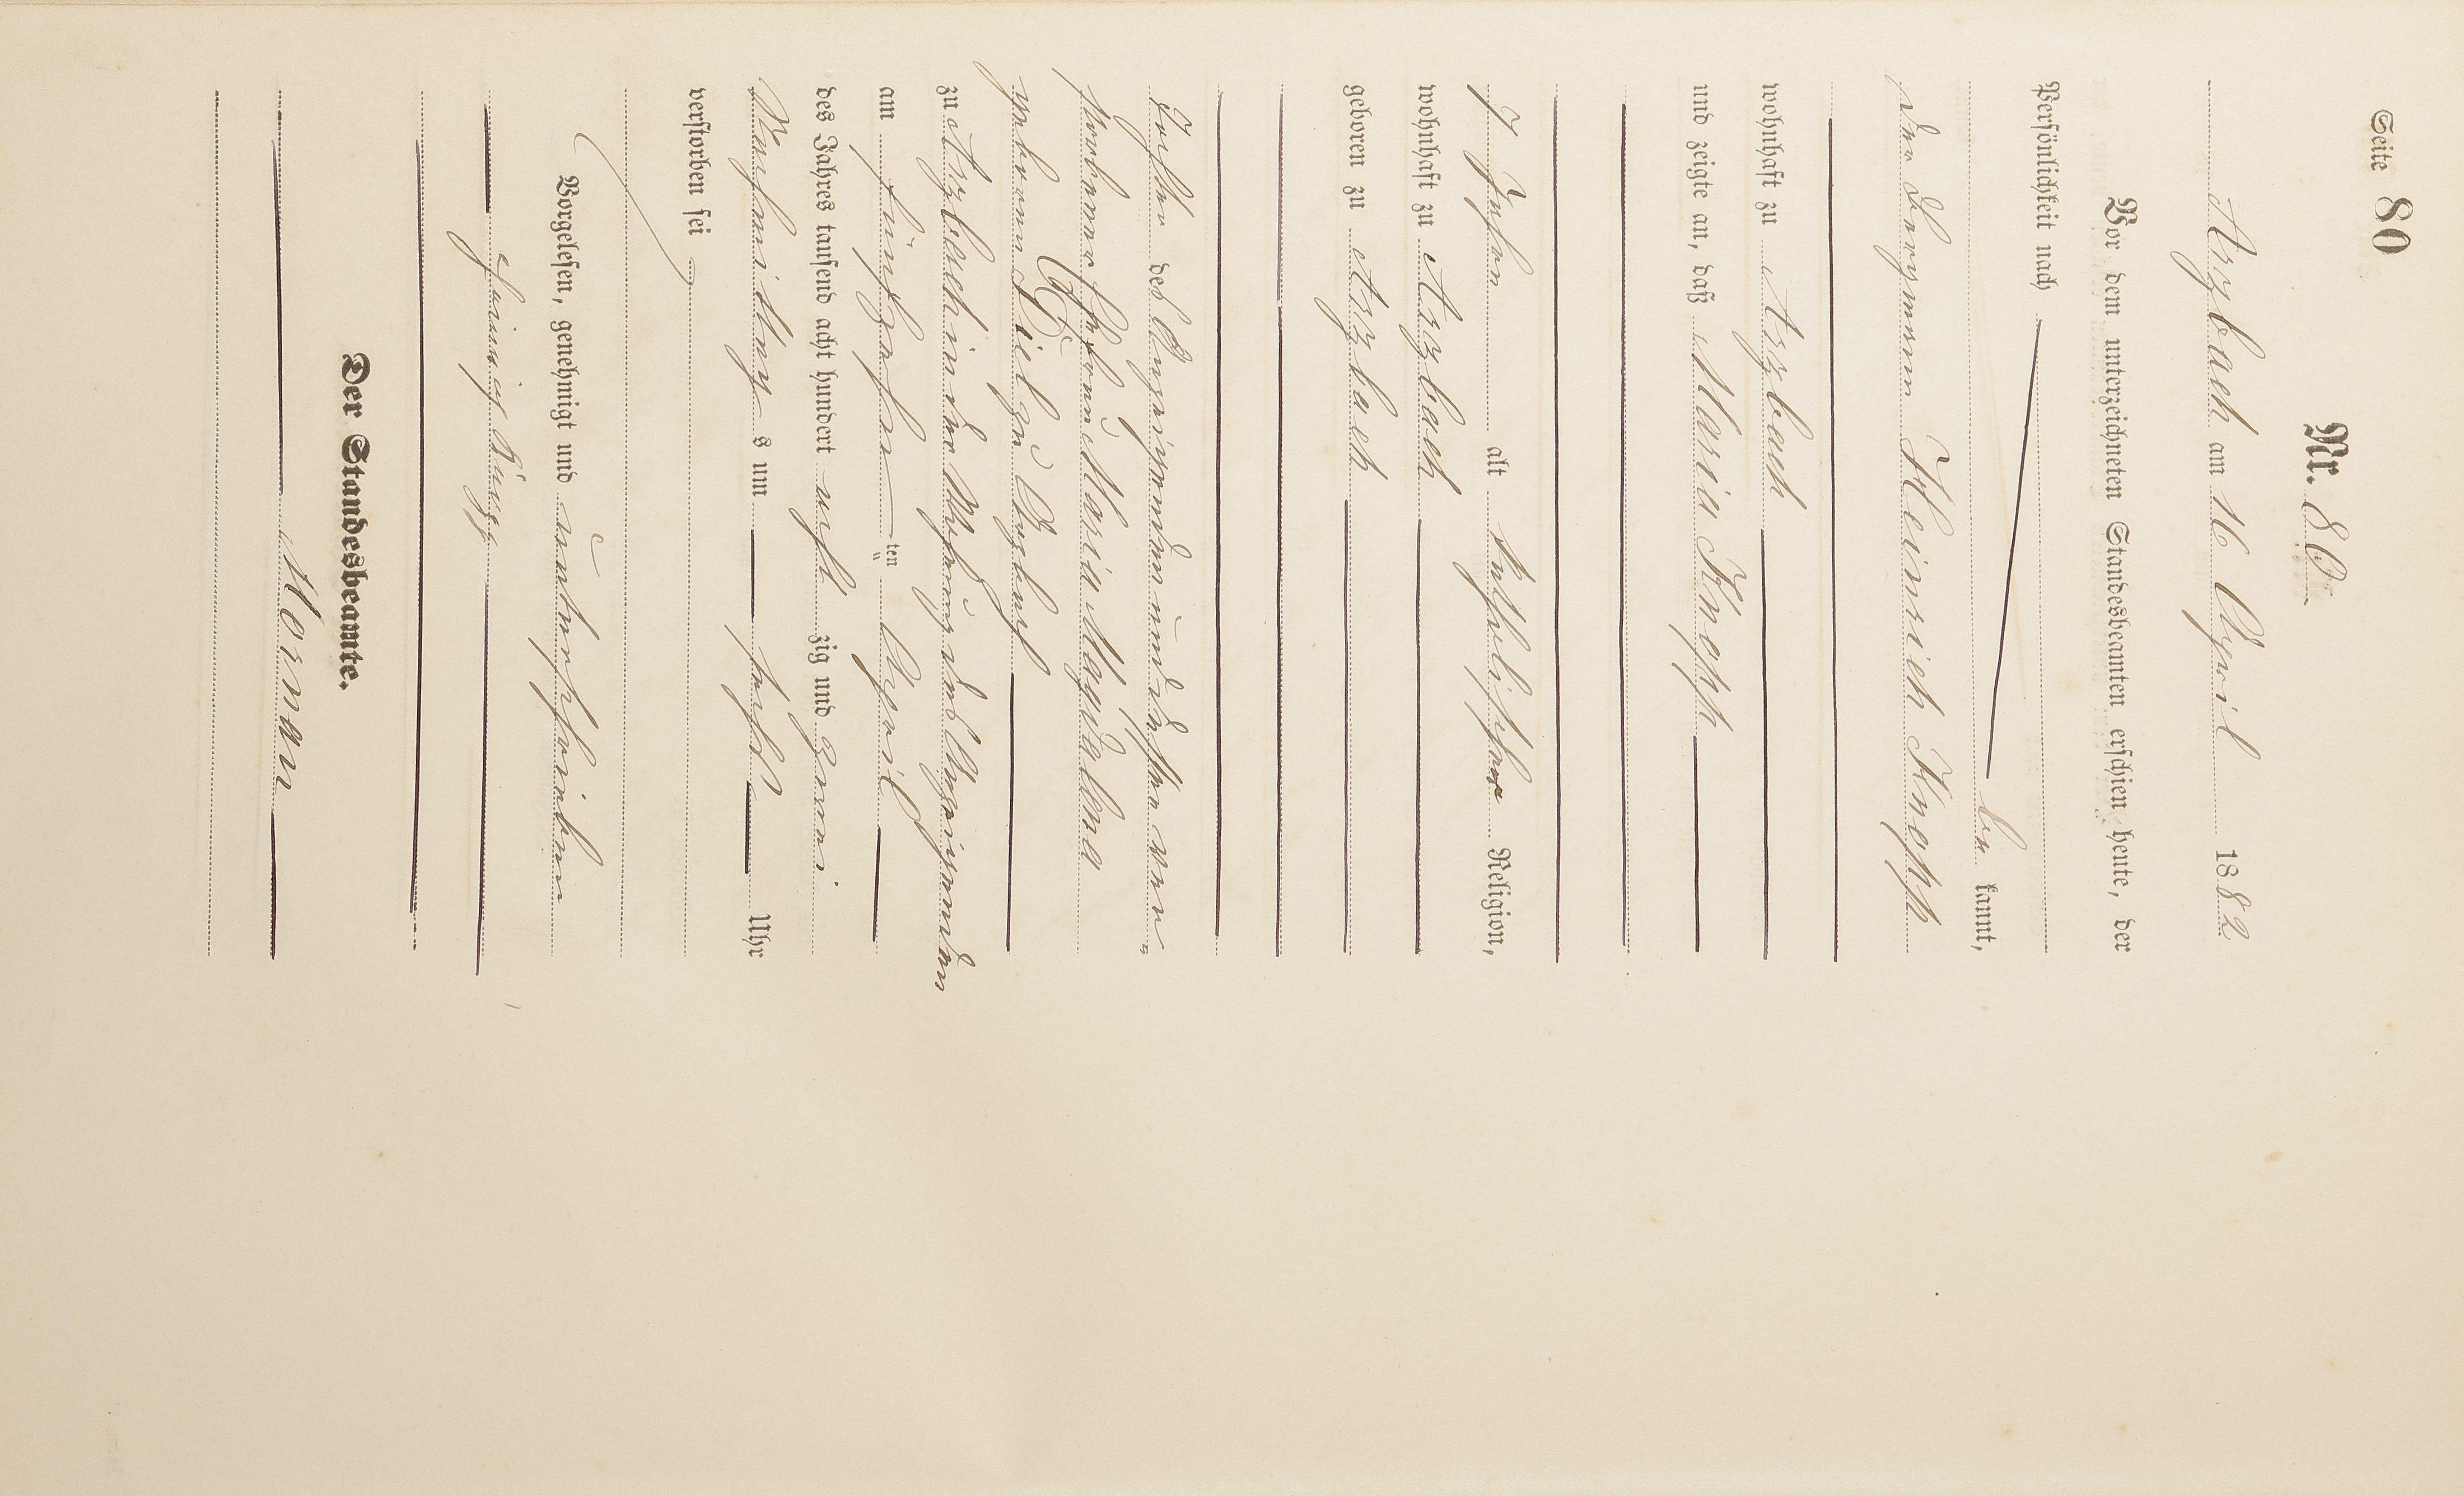 Seite 80
Nr. 80
Arzbach am 16 April 1882
Vor dem unterzeichneten Standesbeamten erschien heute, der
Persönlichkeit nach
be kannt,
der Bergmann Heinrich Knopp
wohnhaft zu Arzbach
und zeigte an, daß Maria Knopp
7 Jahre alt katholischer Religion,
wohnhaft zu Arzbach
geboren zu Arzbach
Tochter des Anzeigenden und dessen ver=
storbener Ehefrau Maria Magdalena
geborenen Diel zu Arzbach
zu Arzbach in der Wohnung des Anzeigenden
am fünfzehn ten April
des Jahres tausend acht hundert acht zig und zwei
Nachmittag s um sechs Uhr
verstorben sei
Vorgelesen, genehmigt und unterschrieben
Heinrich
Der Standesbeamte.